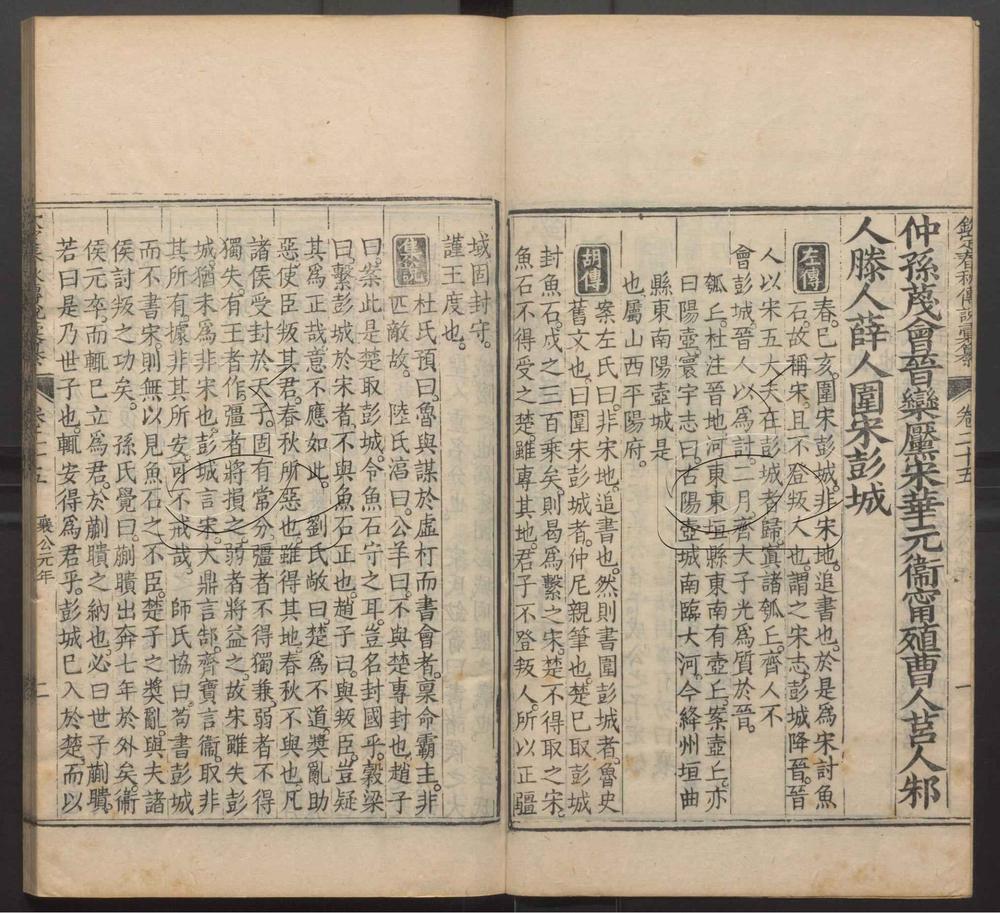 欽定春秋傳說彙纂 卷二十五 一
仲孫蔑會晉欒黶宋華元衞甯殖曹人莒人邾
人滕人薛人圍宋彭城
左傳 春己亥圍宋彭城非宋地追書也於是爲宋討魚
石故稱宋且不登叛人也謂之宋志彭城降晉晉
人以宋五大夫在彭城者歸寘諸瓠丘齊人不
會彭城晉人以爲討二月齊大子光爲質於晉
瓠丘杜注晉地河東東垣縣東南有壺丘案壺丘亦
曰陽壺寰宇志曰古陽壺城南臨大河今絳州垣曲
縣東南陽壺城是
也屬山西平陽府
胡傳 案左氏曰非宋地追書也然則書圍彭城者魯史
舊文也曰圍宋彭城者仲尼親筆也楚已取彭城
封魚石戍之三百乘矣則曷爲繫之宋楚不得取之宋
魚石不得受之楚雖專其地君子不登叛人所以正疆
域固封守
謹王度也
集說 杜氏預曰魯與謀於虛朾而書會者稟命霸主非
匹敵故 陸氏淳曰公羊曰不與楚專封也趙子
曰案此是楚取彭城令魚石守之耳豈名封國乎穀梁
曰繫彭城於宋者不與魚石正也趙子曰與叛臣豈疑
其爲正哉意不應如此 劉氏敞曰楚爲不道獎亂助
惡使臣叛其君春秋所惡也雖得其地春秋不與也凡
諸侯受封於天子固有常分彊者不得獨兼弱者不得
獨失有王者作彊者將損之弱者將益之故宋雖失彭
城猶未爲非宋也彭城言宋大鼎言郜齊寶言衞取非
其所有據非其所安可不戒哉 師氏協曰苟書彭城
而不書宋則無以見魚石之不臣楚子之獎亂與夫諸
侯討叛之功矣 孫氏覺曰蒯聵出奔七年於外矣衞
侯元卒而輒已立爲君於蒯聵之納也必曰世子蒯聵
若曰是乃世子也輒安得爲君乎彭城已入於楚而以
襄公元年 二